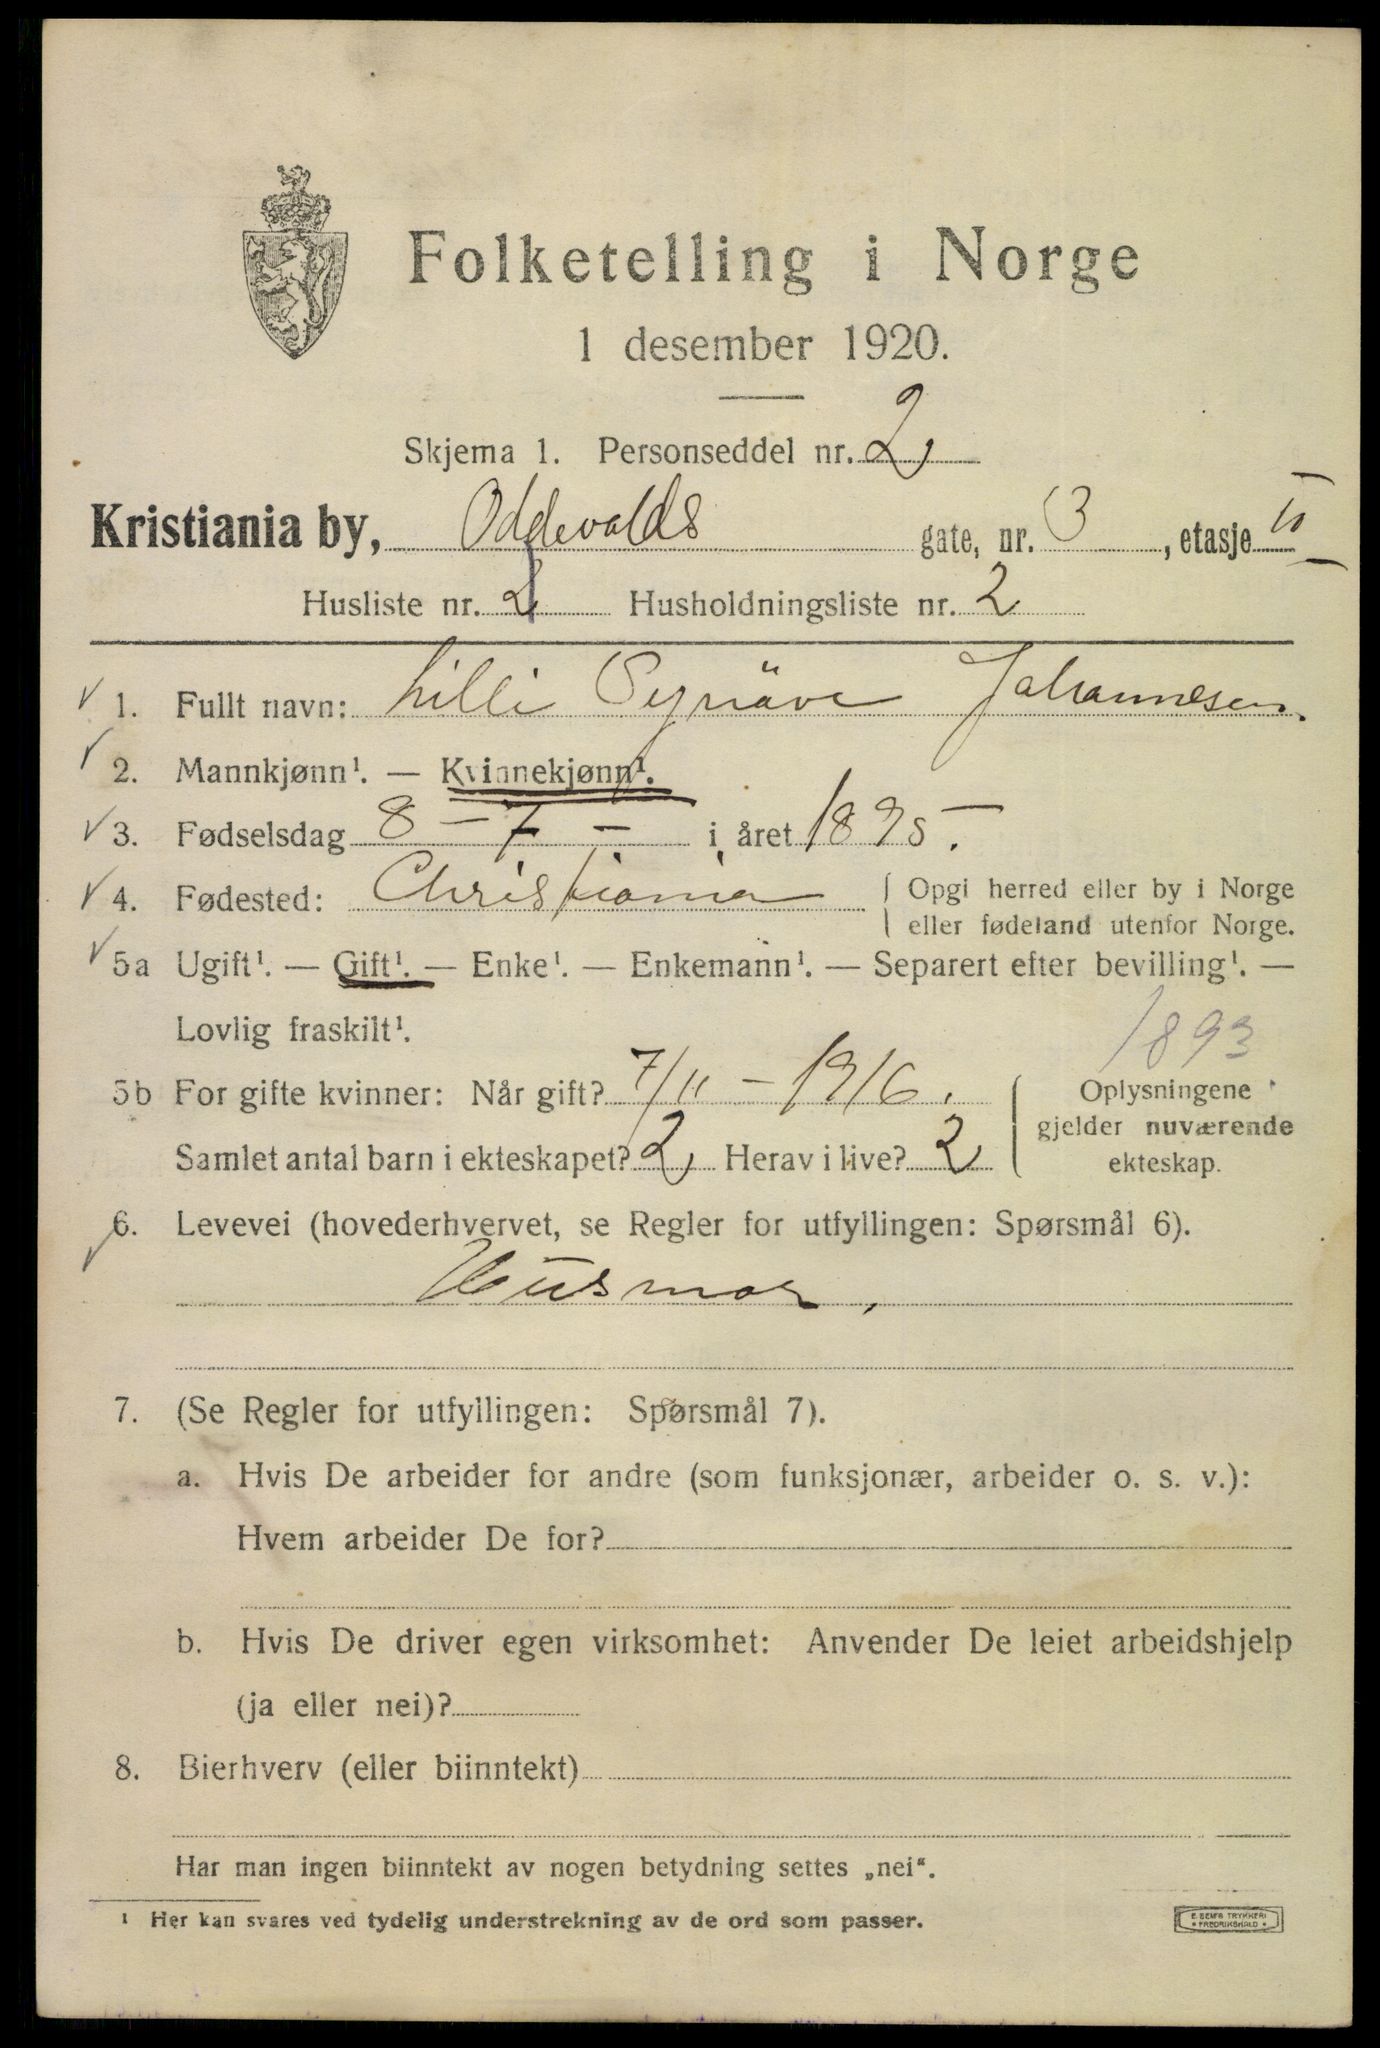 Folketelling i Norge
1 desember 1920.
Skjema 1. Personseddel nr. 2
Kristiania by, Oddevalds gate, nr. 3, etasje II
Husliste nr. 2 Husholdningsliste nr. 2
1. Fullt navn: Lilli Synöve Johannesen.
2. Mannkjønn¹. — Kvinnekjønn¹.
3. Fødselsdag 8 – 7 – i året 1895.
4. Fødested: Christiania Opgi herred eller by i Norge
eller fødeland utenfor Norge.
5a Ugift¹. — Gift¹. — Enke¹. — Enkemann¹. — Separert efter bevilling¹. —
Lovlig fraskilt¹.
1893
5b For gifte kvinner: Når gift? 7/11 – 1916. Oplysningene
gjelder nuværende
Samlet antal barn i ekteskapet? 2 Herav i live? 2 ekteskap.
6. Levevei (hovederhvervet, se Regler for utfyllingen: Spørsmål 6).
Husmor.
7. (Se Regler for utfyllingen: Spørsmål 7).
a. Hvis De arbeider for andre (som funksjonær, arbeider o. s. v.):
Hvem arbeider De for?
b. Hvis De driver egen virksomhet: Anvender De leiet arbeidshjelp
(ja eller nei)?
8. Bierhverv (eller biinntekt)
Har man ingen biinntekt av nogen betydning settes „nei“.
¹ Her kan svares ved tydelig understrekning av de ord som passer.
E. SEMS TRYKKERI
* FREDRIKSHALD *